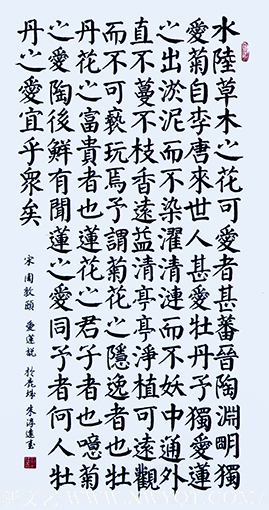 水陸草木之花可愛者甚蕃晉陶淵明獨
愛菊自李唐來世人甚愛牡丹予獨愛蓮
之出淤泥而不染濯清漣而不妖中通外
直不蔓不枝香遠益清亭亭淨植可遠觀
而不可褻玩焉予謂菊花之隱逸者也牡
丹花之富貴者也蓮花之君子者也噫菊
之愛陶後鮮有聞蓮之愛同予者何人牡
丹之愛宜乎衆矣
宋 周敦頤 愛蓮說